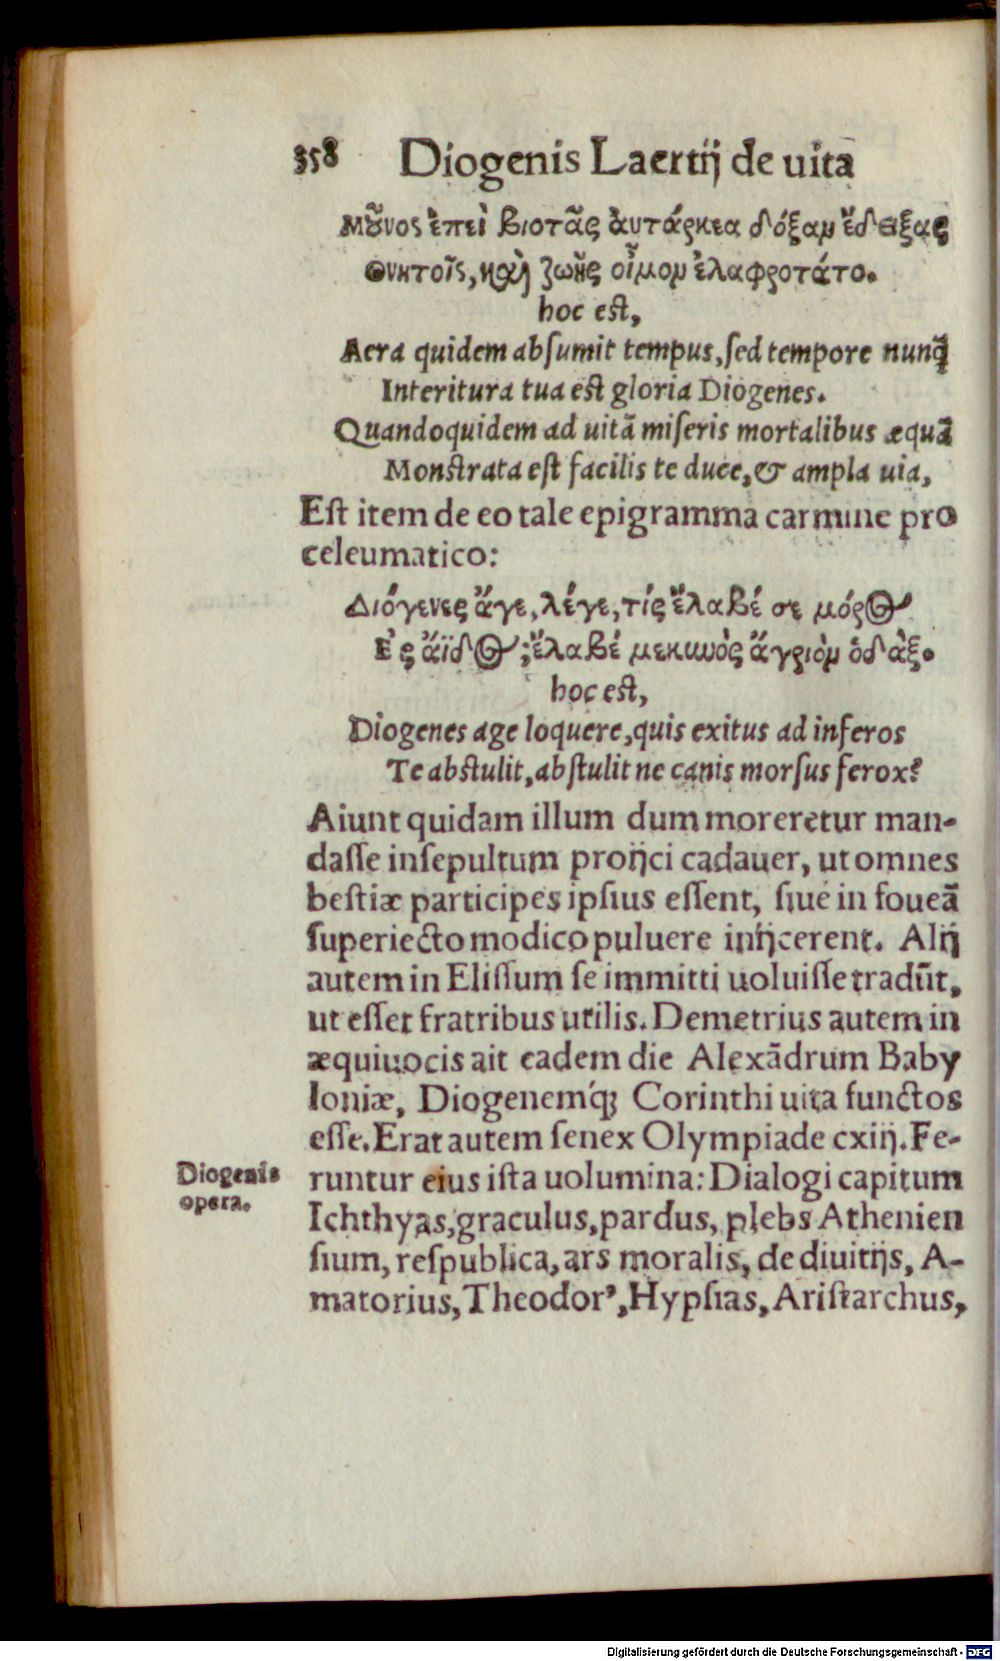 358 Diogenis Laertij de uita
Μȣ͂νος ἐπεὶ βιοτᾶς ἀυτάρκεα δόξαμ ἔδειξας
Θνητοῖς, καὶ ζωῆς οἶμομ ἐλαφροτάτο.
hoc est,
Aera quidem absumit tempus, sed tempore nunq̃
Interitura tua est gloria Diogenes.
Quandoquidem ad uitã miseris mortalibus æquã
Monstrata est facilis te duce, & ampla uia,
Est item de eo tale epigramma carmine pro
celeumatico:
Διόγενες ἄγε, λέγε, τίς ἔλαβέ σε μόρος
Ἐς ἄϊδος; ἔλαβέ με κυνὸς ἄγριὸμ ὁδὰξ.
hoc est,
Diogenes age loquere, quis exitus ad inferos
Te abstulit, abstulit ne canis morsus ferox?
Aiunt quidam illum dum moreretur man-
dasse insepultum proijci cadauer, ut omnes
bestiæ participes ipsius essent, siue in foueã
superiecto modico puluere inijcerent. Alij
autem in Elissum se immitti uoluisse tradũt,
ut esset fratribus utilis. Demetrius autem in
æquiuocis ait eadem die Alexãdrum Baby
loniæ, Diogenemq́; Corinthi uita functos
esse. Erat autem senex Olympiade cxiij. Fe-
Diogenis
opera.
runtur eius ista uolumina: Dialogi capitum
Ichthyas, graculus, pardus, plebs Athenien
sium, respublica, ars moralis, de diuitijs, A-
matorius, Theodor', Hypsias, Aristarchus,
Digitalisierung gefördert durch die Deutsche Forschungsgemeinschaft - DFG